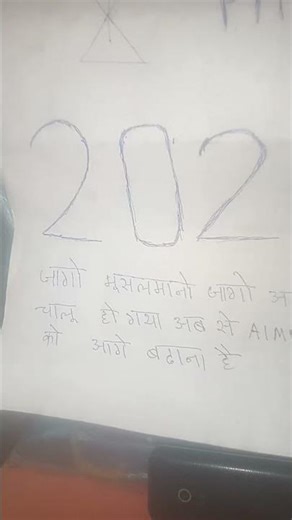 202
जागो मुसलमानो जागो अ
चालू हो गया अब से AIM
को आगे बढाना है